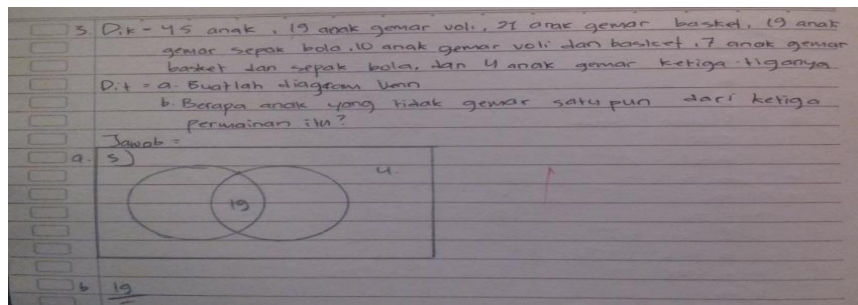 3. Dik = 45 anak, 19 anak gemar voli, 21 anak gemar basket, 19 anak
gemar sepak bola, 10 anak gemar voli dan basket, 7 anak gemar
basket dan sepak bola, dan 4 anak gemar ketiga-tiganya
Dit = a. Buatlah diagram Venn
b. Berapa anak yang tidak gemar satu pun dari ketiga
permainan itu?
Jawab =
a. S)
4
19
b 19